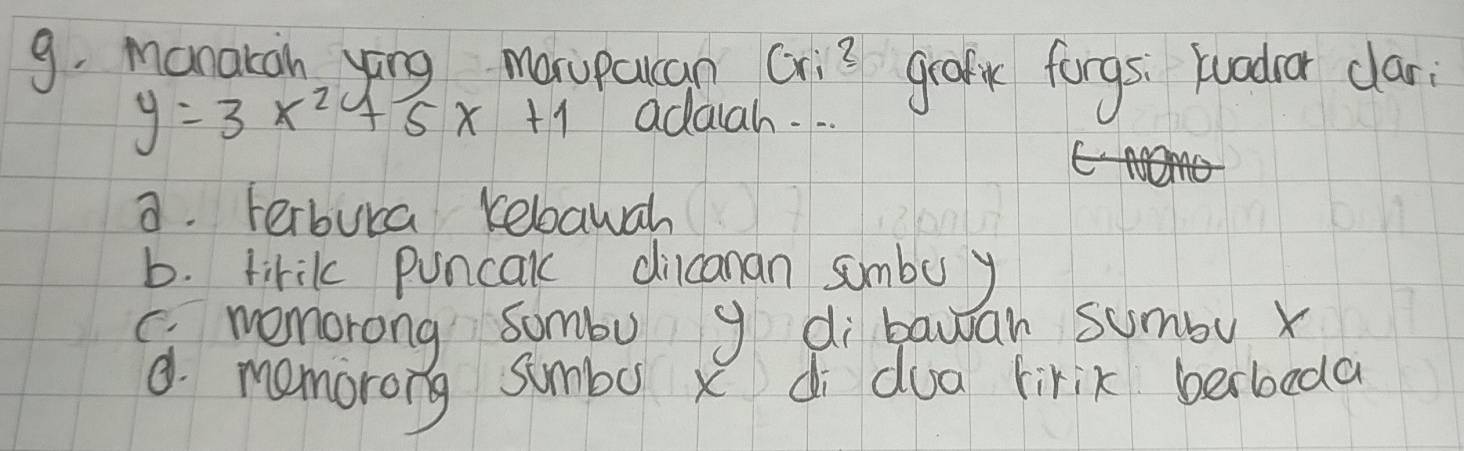 9. Manakah yang merupakan Ciri² grafik fungsi kuadrat dari
y = 3x² + 5x + 1 adalah...
a. terbuka kebawah
b. titik puncak dikanan sumbu y
c. memotong sumbu y di bawah sumbu x
d. memotong sumbu x di dua titik berbeda